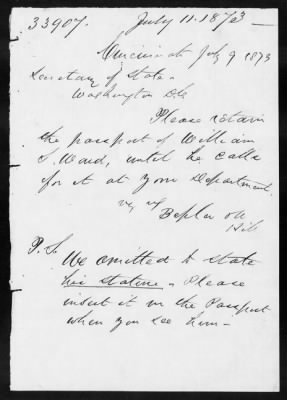 33907. July 11. 1873 —
Cincinnati July 9 1873
Secretary of State
Washington DC
Please retain
the passport of William
S. Ward, until he calls
for it at your Department.
P.S. We omitted to state
his stature. Please
insert it in the Passport
when you see him —